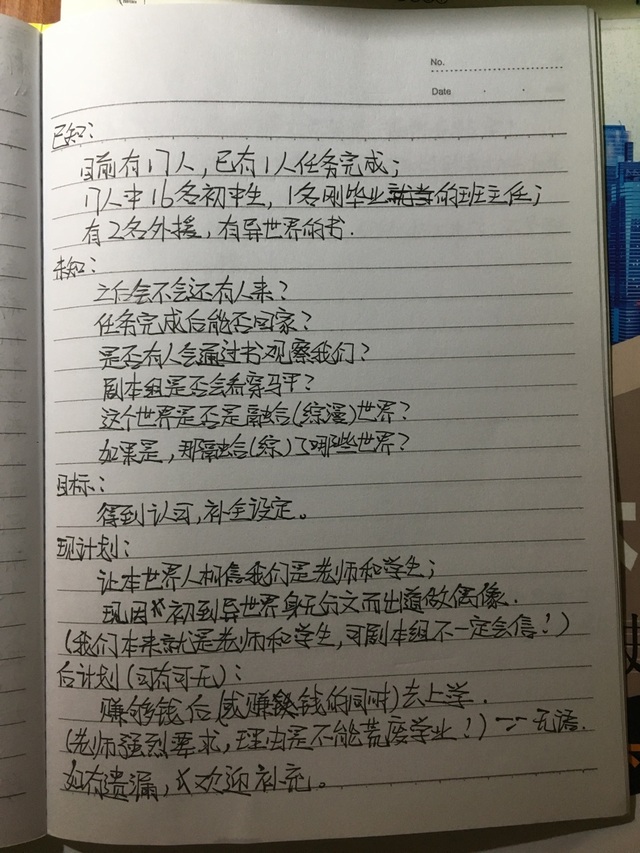 No.
Date
已知：
目前有17人，已有1人任务完成；
17人中16名初中生，1名刚毕业就当的班主任；
有2名外援，有异世界的书.
未知：
之后会不会还有人来？
任务完成后能否回家？
是否有人会通过书观察我们？
剧本组是否会看穿马甲？
这个世界是否是融合(综漫)世界？
如果是，那融合(综)了哪些世界？
目标：
得到认可，补全设定。
现计划：
让本世界人相信我们是老师和学生；
现因初到异世界身无分文而出道做偶像.
(我们本来就是老师和学生，可剧本组不一定会信！)
后计划(可有可无)：
赚够钱后(或赚钱的同时)去上学.
(老师强烈要求，理由是不能荒废学业！) 无语.
如有遗漏，欢迎补充。